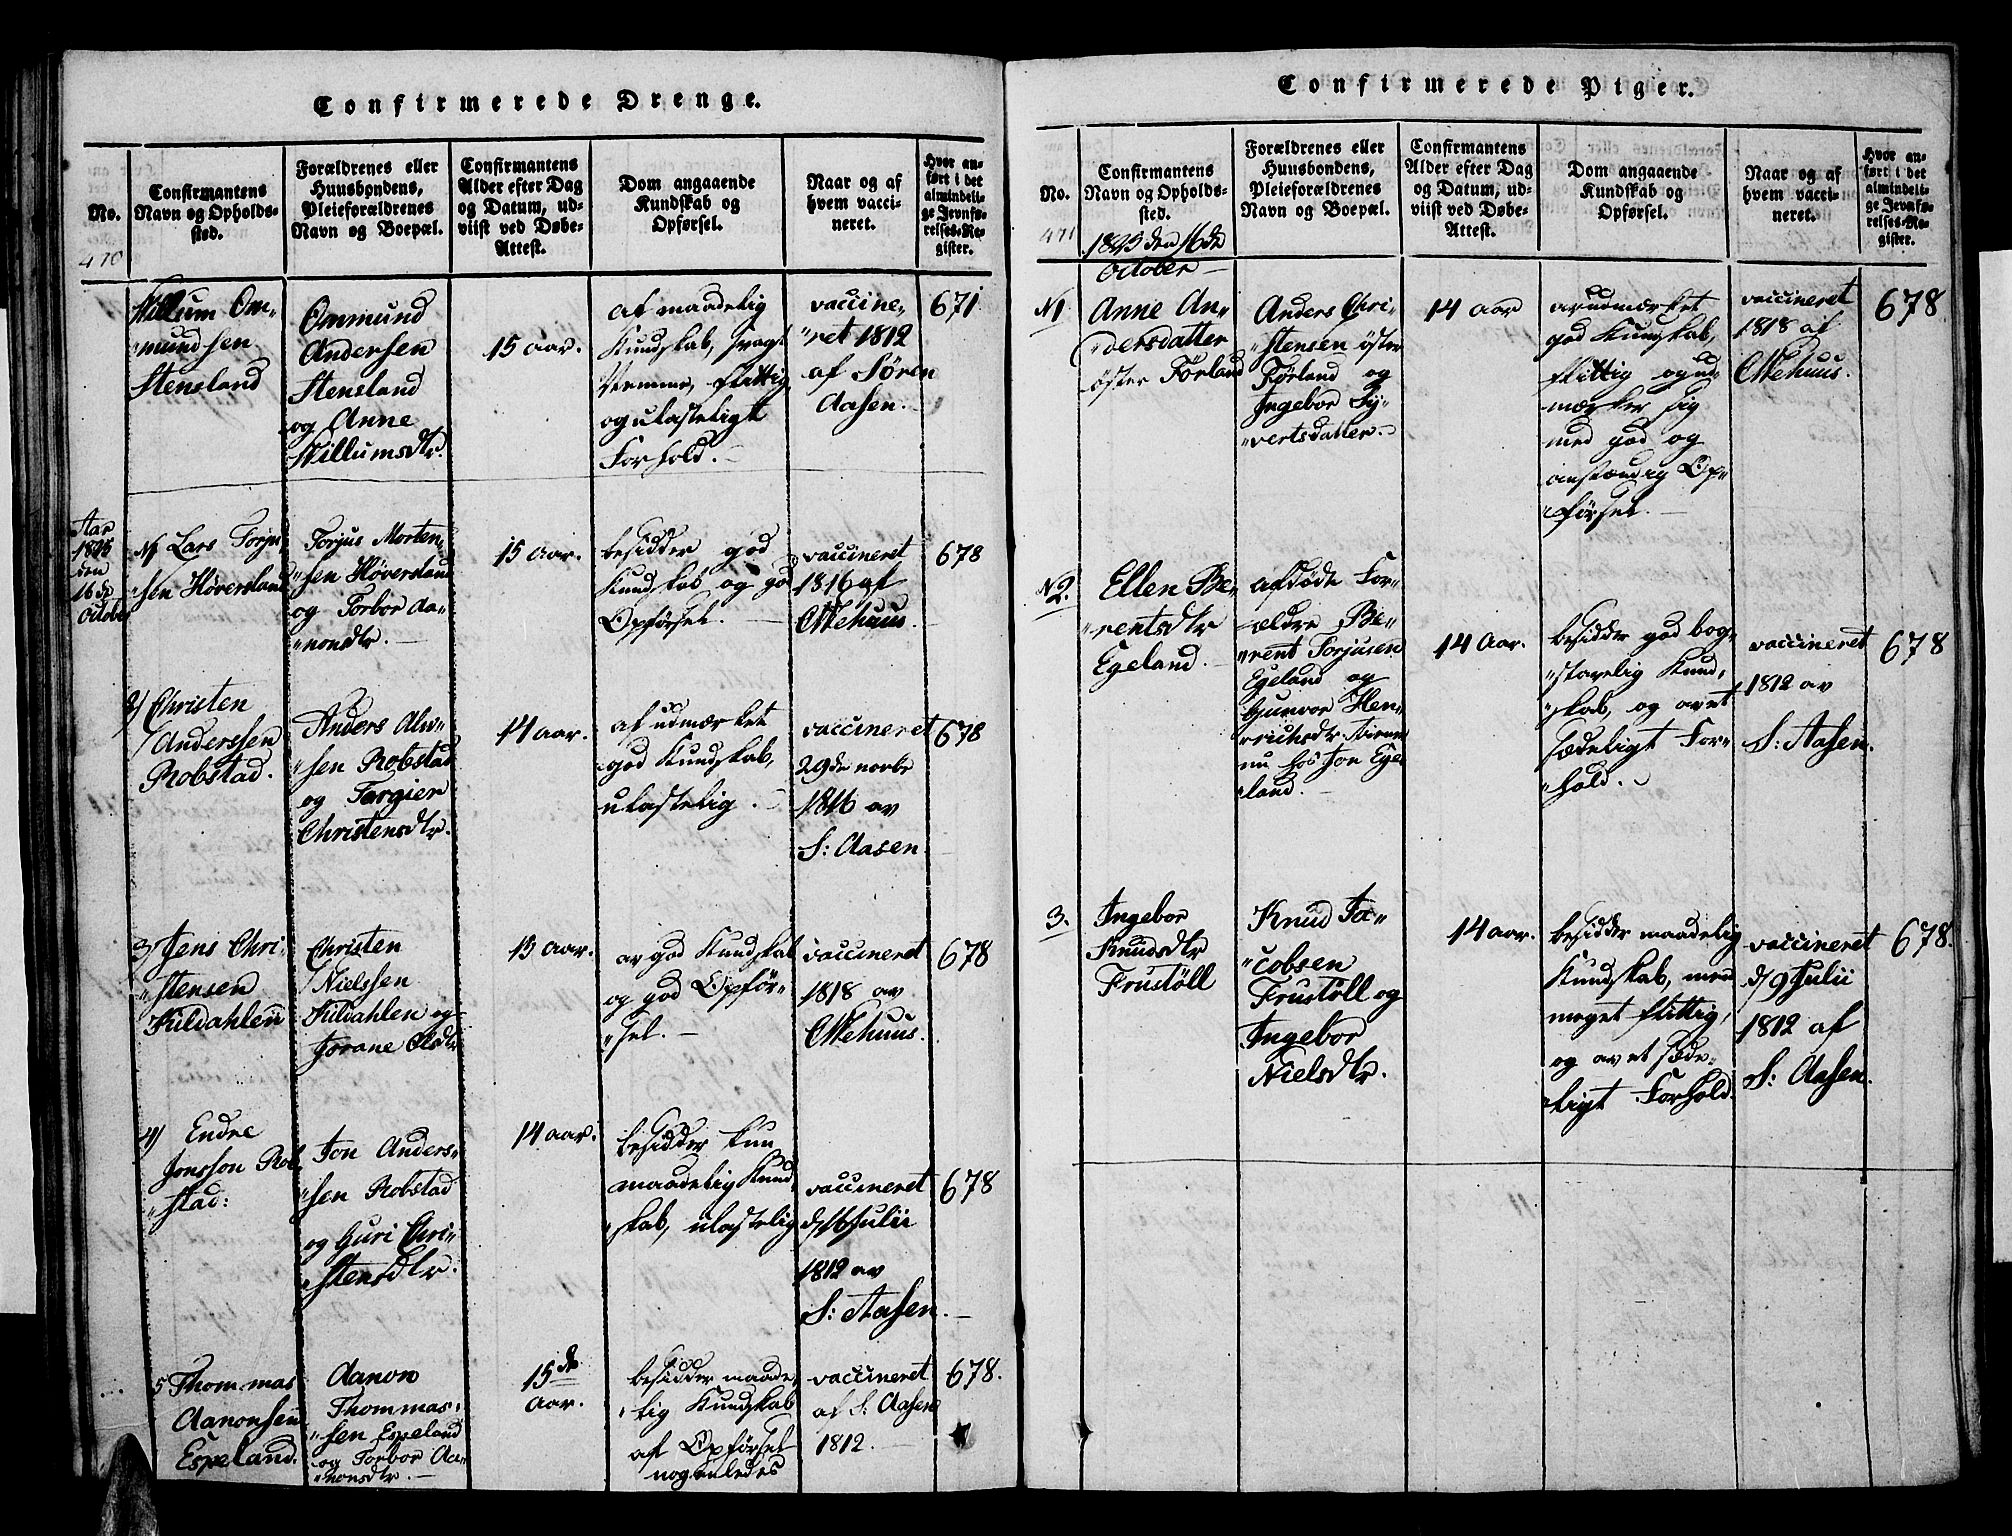 Confirmerede Drenge.
No.
Confirmantens
Navn og Opholds-
sted.
Forældrenes eller
Huusbondens,
Pleieforældrenes
Navn og Boepæl.
Confirmantens
Alder efter Dag
og Datum, ud-
viist ved Døbe-
Attest.
Dom angaaende
Kundskab og
Opførsel.
Naar og af
hvem vacci-
neret.
Hvor an-
ført i det
almindeli-
ge Jevnfø-
relses-Re-
gister.
470
Willum Om-
mundsen
Stensland
Ommund
Andersen
Stensland
og Anne
Willumsdtr.
15 aar.
af maadelig
Kundskab, svagt
Nemme, flittig
og ulasteligt
Forhold.
vaccine-
ret 1812
af Sören
Aasen.
671
Aar
1825
den
16de
October
N1 Lars Torju-
sen Höversland
Torjus Morten-
sen Höversland
og Torbor Aa-
nondtr.
15 aar.
besidder god
Kundskab og god
Opførsel.
vaccineret
1816 af
OMehuus.
678
2) Christen
Anderssen
Robstad.
Anders Alw-
sen Robstad
og Targier
Christensdtr.
14 aar.
af udmærket
god Kundskab,
ulastelig.
vaccineret
29de novbr
1816 av
S: Aasen
678
3) Jens Chri-
stensen
Kildahlen
Christen
Nielssen
Kildahlen og
Jorane Olsdtr
15 aar.
av god Kundskab
og god Opför-
sel.
vaccineret
1818 av
OMehuus.
678
4) Endre
Jonsson Rob-
stad:
Jon Anders-
sen Robstad
og Guri Chri-
stensdtr.
14 aar.
besidder kun
maadelig Kund-
skab, ulastelig
vaccineret
d/16 Julii
1812 av
S: Aasen.
678
5 Thommas
Aanonsen
Espeland.
Aanon
Thommas-
sen Espeland
og Torbor Aa-
nonsdtr.
15de
aar.
besidder maade-
lig Kundskab
af Opførsel
nogenledes
vaccineret
af S: Aasen
1812.
678.
Confirmerede Piger.
No.
Confirmantens
Navn og Opholds-
sted.
Forældrenes eller
Huusbondens,
Pleieforældrenes
Navn og Boepæl.
Confirmantens
Alder efter Dag
og Datum, ud-
viist ved Døbe-
Attest.
Dom angaaende
Kundskab og
Opførsel.
Naar og af
hvem vacci-
neret.
Hvor an-
ført i det
almindeli-
ge Jevnfø-
relses-Re-
gister.
471
1825 den 16de
October
N1
Anne An-
dersdatter
öster Förland
Anders Chri-
stensen öster
Förland og
Ingebor Sy-
vertsdatter.
14 aar
av udmærket
god Kundskab,
flittig og ud-
mærker sig
med god og
anstændig Op-
førsel.
vaccineret
1818 af
OMehuus.
678
N2.
Ellen Be-
rentsdtr
Egeland.
afdöde For-
ældre Be-
rent Torjusen
Egeland og
Gunvor Hen-
richsdtr
nu hos Jon Ege-
land.
14 Aar.
besidder god bog-
stavelig Kund-
skab, og av et
sædeligt For-
hold.
vaccineret
1812 av
S: Aasen.
678
3.
Ingebor
Knudsdtr
Frustöll
Knud Ja-
cobsen
Frustöll og
Ingebor
Nielsdtr.
14 aar.
besidder maadelig
Kundskab, men
meget flittig,
og av et sæde-
ligt Forhold
vaccineret
d/9 Julii
1812 af
S: Aasen.
678.